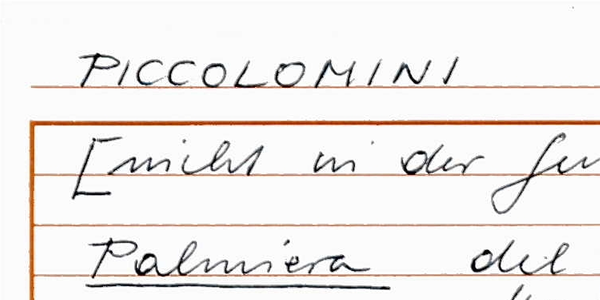 PICCOLOMINI
[nicht in der
Palmiera del